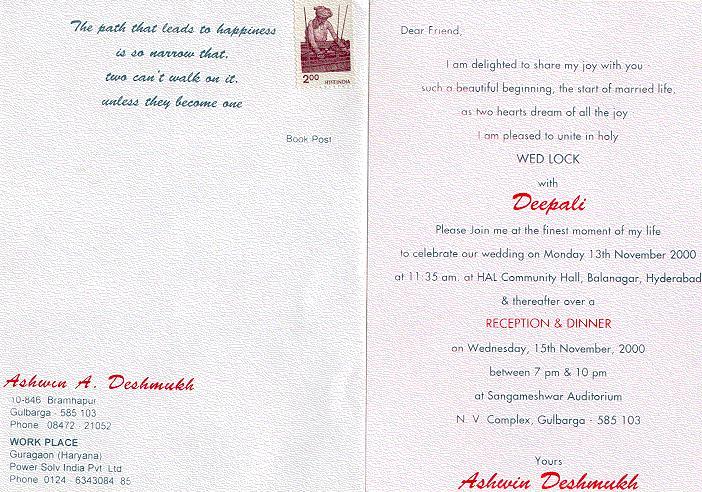 The path that leads to happiness
is so narrow that.
two can't walk on it.
unless they become one
2.00
भारत INDIA
Book Post
Ashwin A. Deshmukh
10-846 Bramhapur
Gulbarga - 585 103
Phone 08472 - 21052
WORK PLACE
Guragaon (Haryana)
Power Solv India Pvt Ltd
Phone 0124 - 6343084 85
Dear Friend,
I am delighted to share my joy with you
such a beautiful beginning, the start of married life,
as two hearts dream of all the joy
I am pleased to unite in holy
WED LOCK
with
Deepali
Please Join me at the finest moment of my life
to celebrate our wedding on Monday 13th November 2000
at 11:35 am. at HAL Community Hall, Balanagar, Hyderabad
& thereafter over a
RECEPTION & DINNER
on Wednesday, 15th November, 2000
between 7 pm & 10 pm
at Sangameshwar Auditorium
N. V. Complex, Gulbarga - 585 103
Yours
Ashwin Deshmukh